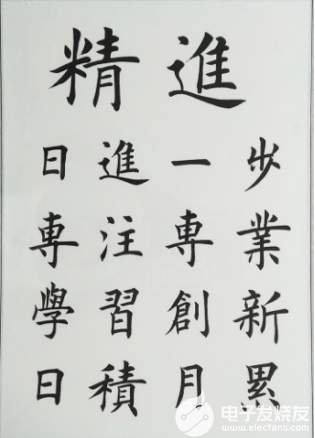 精進
日進一步
専注専業
學習創新
日積月累
电子发烧友
www.elecfans.com